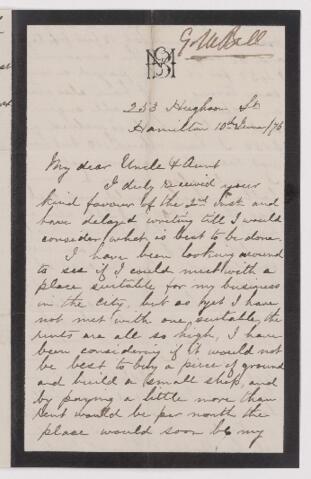 G M Bell
253 Hughson St
Hamilton 10th June/76
My dear Uncle & Aunt
I duly received your
kind favour of the 2nd Inst and
have delayed writing till I would
consider what is best to be done.
I have been looking around
to see if I could meet with a
place suitable for my business
in the city, but as yet I have
not met with one suitable, the
rents are all so high, I have
been considering if it would not
be best to buy a piece of ground
and build a small shop, and
by paying a little more than
rent would be per month the
place would soon be my